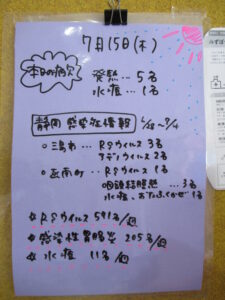 7月15日(木)
本日の病欠
発熱…5名
水痘…1名
静岡 感染症情報 6/28~7/4
○三島市…RSウイルス 3名
アデノウイルス 2名
○函南町…RSウイルス 1名
咽頭結膜熱…3名
水痘、おたふくかぜ 1名
☆RSウイルス 591名/週
☆感染性胃腸炎 205名/週
☆水痘 11名/週